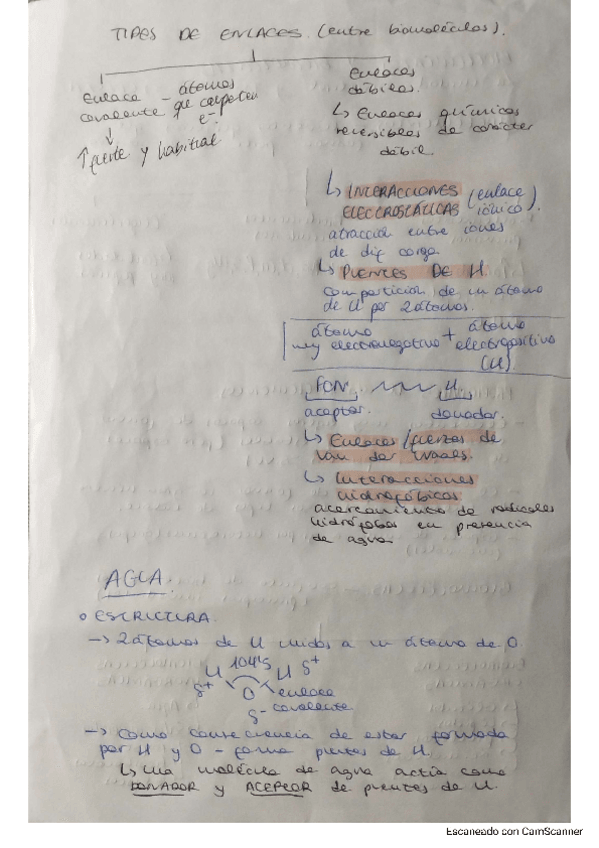 TIPES DE ENLACES (entre biomoléculas).
Enlace covalente - átomos que comparten e-
↓
↑ fuerte y habitual
Enlaces débiles.
↳ Enlaces químicos
reversibles de carácter
débil.
↳ INTERACCIONES (enlace
ELECTROSTÁTICAS iónico).
atracción entre iones
de dif carga.
↳ PUENTES DE H.
compartición de un átomo
de H por 2 átomos.
átomo muy electronegativo + átomo electropositivo
(H).
FON. H.
aceptor. donador.
↳ Enlaces/fuerzas de
Van der Waals.
↳ Interacciones
hidrofóbicas
acercamiento de radicales
hidrófobos en presencia
de agua.
AGUA.
o ESTRUCTURA.
→ 2 átomos de H unidos a un átomo de O.
H 104'5 H δ+
δ+ O enlace
δ- covalente
→ como consecuencia de estar formada
por H y O - forma puentes de H.
↳ una molécula de agua actúa como
DONADOR y ACEPTOR de puentes de H.
Escaneado con CamScanner